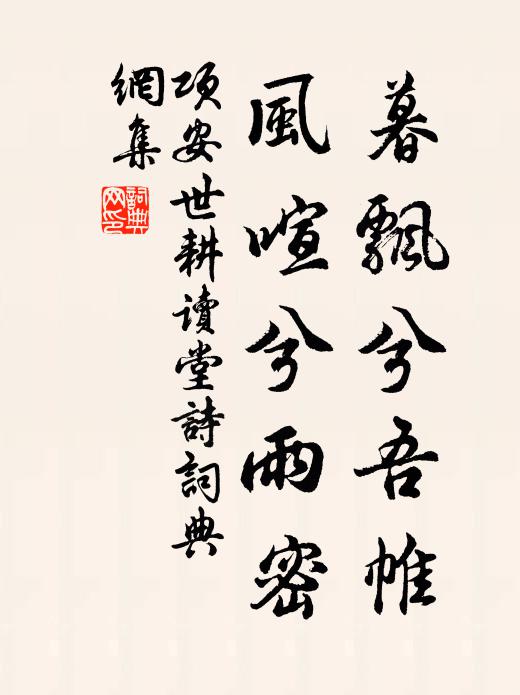 暮飄兮吾帷
風喧兮雨密
項安世耕讀堂詩詞典
網集
詞典網印